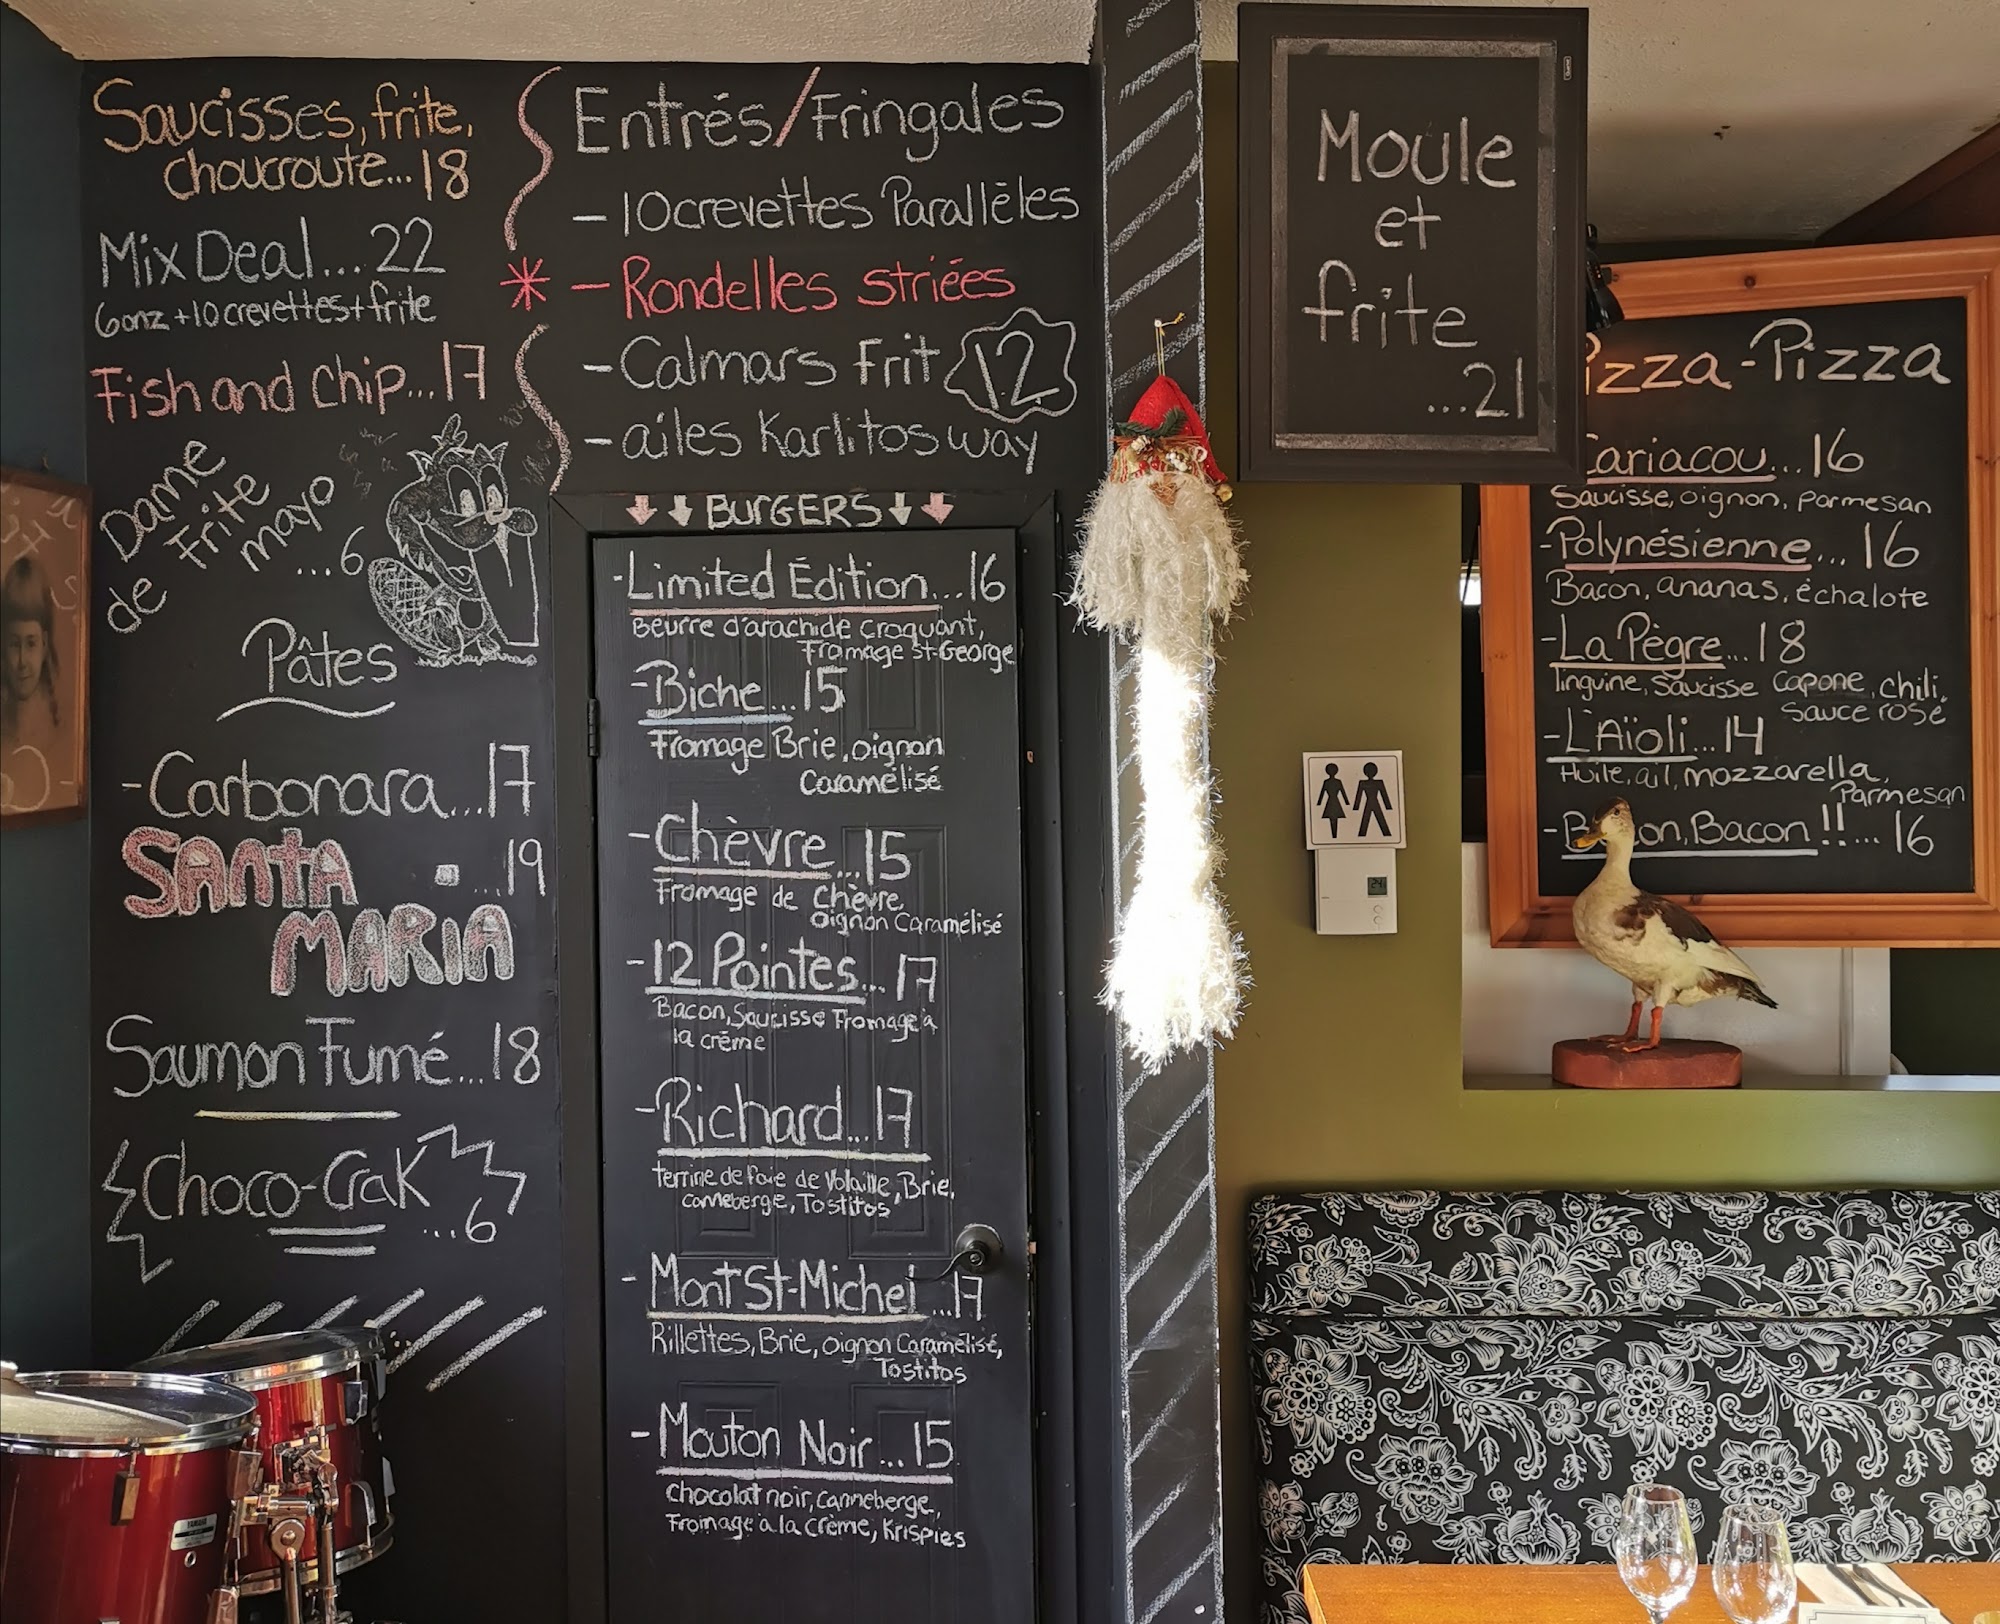 Saucisses, frite,
choucroute...18
Mix Deal...22
6onz+10crevettes+frite
Fish and Chip...17
Dame
de Frite
mayo
...6
Pâtes
-Carbonara...17
SANTA
MARIA
...19
Saumon Fumé...18
Choco-Crak
...6
Entrés/Fringales
-10crevettes Parallèles
* -Rondelles striées
-Calmars Frit 12
-ailes Karlitos way
BURGERS
-Limited Édition...16
Beurre d'arachide croquant,
Fromage St-George
-Biche...15
Fromage Brie, oignon
Caramélisé
-Chèvre...15
Fromage de Chèvre,
oignon Caramélisé
-12 Pointes...17
Bacon, Saucisse Fromage à
la crème
-Richard...17
Terrine de foie de Volaille, Brie,
canneberge, Tostitos
-Mont St-Michel...17
Rillettes, Brie, oignon Caramélisé,
Tostitos
-Mouton Noir...15
chocolat noir, canneberge,
Fromage à la crème, Krispies
Moule
et
frite
...21
Pizza-Pizza
Cariacou...16
Saucisse, oignon, parmesan
-Polynésienne...16
Bacon, ananas, échalote
-La Pègre...18
linguine, saucisse capone, chili,
sauce rosé
-L'Aïoli...14
Huile, ail, mozzarella,
Parmesan
-Bacon, Bacon!!...16
YAMAHA